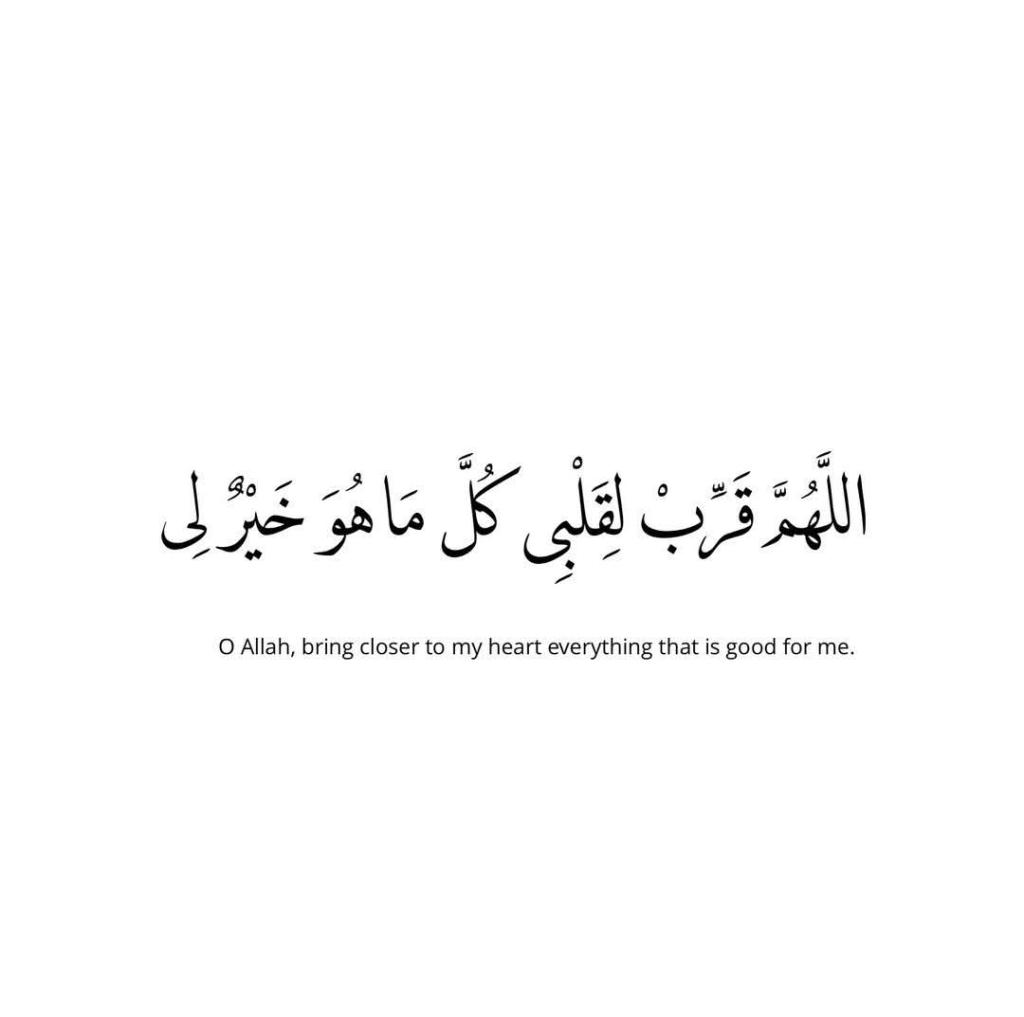 اللَّهُمَّ قَرِّبْ لِقَلْبِي كُلَّ مَا هُوَ خَيْرٌ لِي
O Allah, bring closer to my heart everything that is good for me.